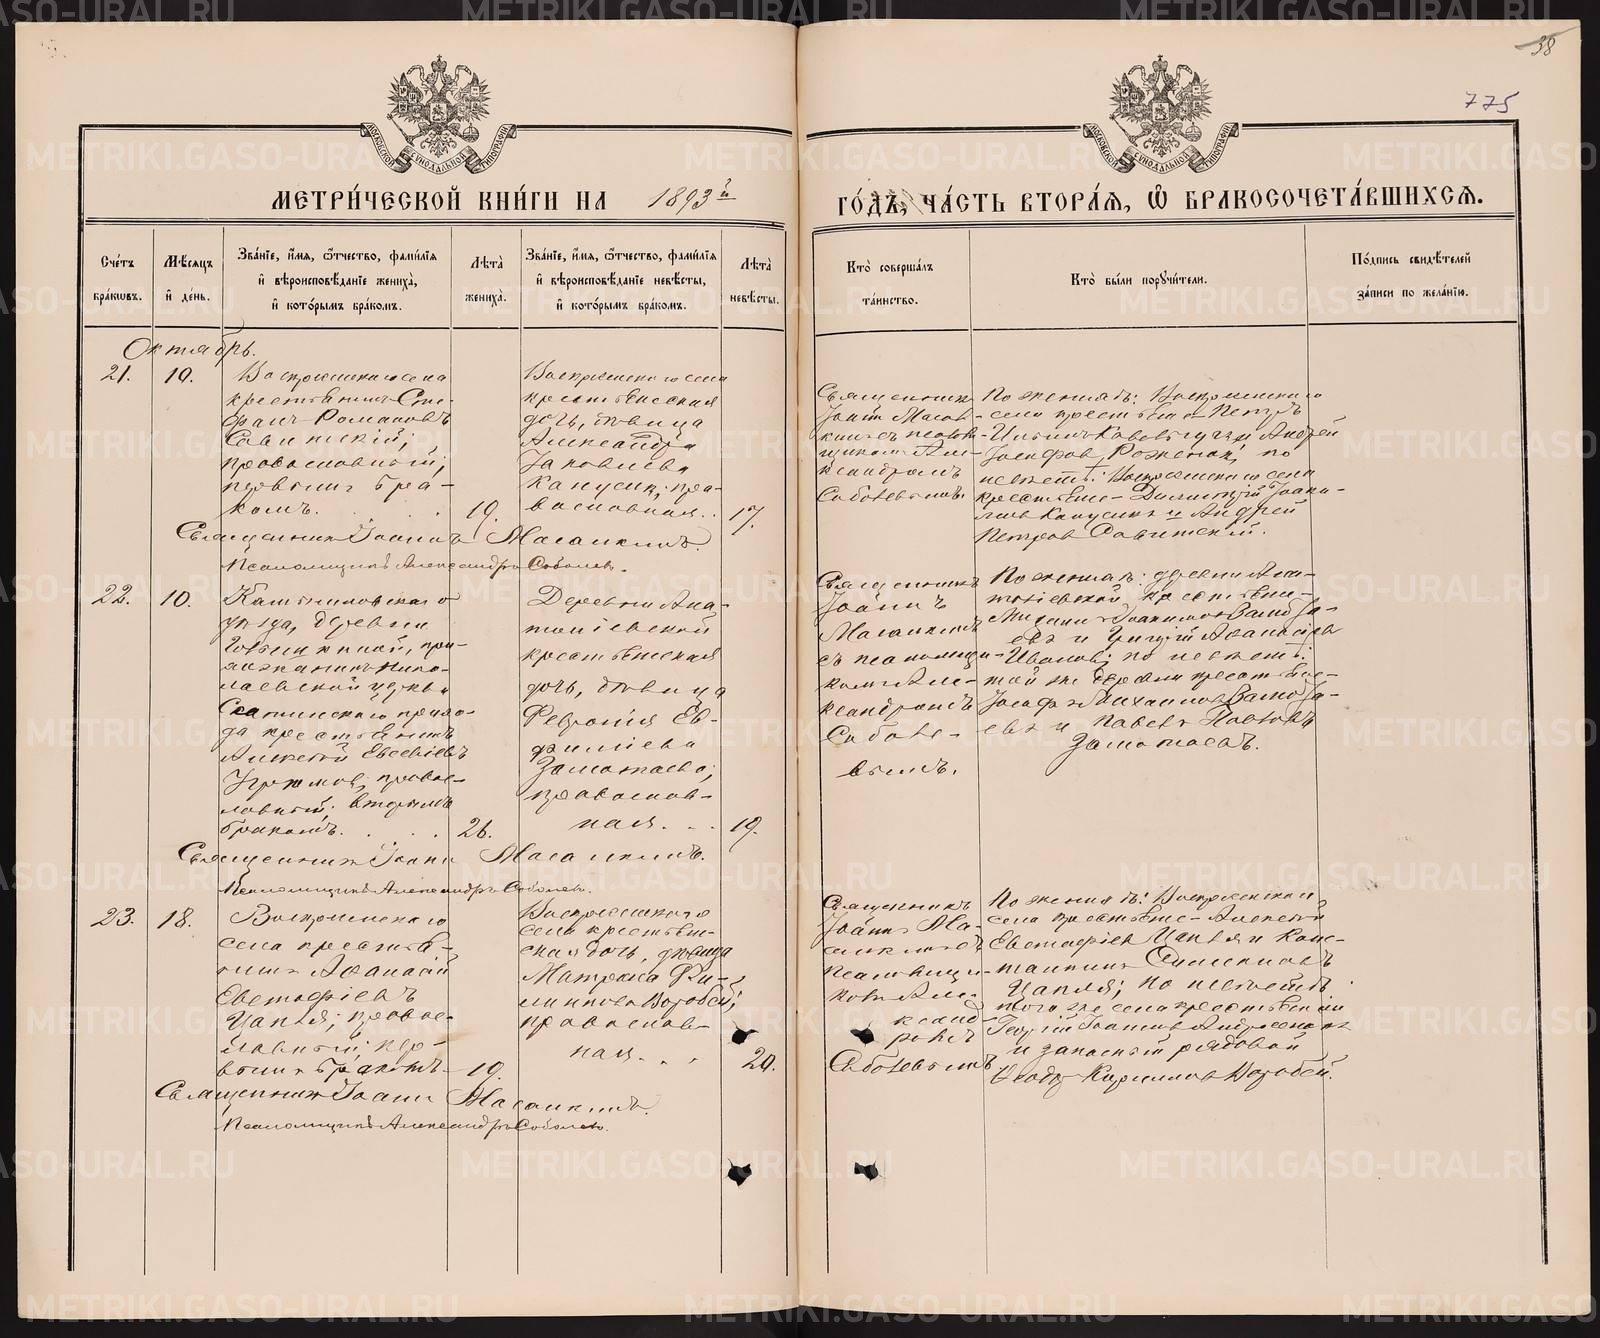 38
775
МЕТРИ́ЧЕСКОЙ КНИ́ГИ НА 1893й ГО́ДЪ, ЧА́СТЬ ВТОРА́Я, Ѽ БРАКОСОЧЕТА́ВШИХСЯ.
Сче́тъ бра́кѡвъ.
Мѣ́сяцъ и҆ де́нь.
Зва́нїе, и҆́мя, ѻ҆́тчество, фами́лїя и҆ вѣроисповѣ́данїе жениха̀, и҆ кото́рымъ бра́комъ.
Лѣ́та жениха̀.
Зва́нїе, и҆́мя, ѻ҆́тчество, фами́лїя и҆ вѣроисповѣ́данїе невѣ́сты, и҆ кото́рымъ бра́комъ.
Лѣ́та невѣ́сты.
Кто̀ соверша́лъ та́инство.
Кто̀ бы́ли поручи́тели.
По́дпись свидѣ́телей за́писи по жела́нїю.
Октябрь.
21.
10.
Воскресенскаго села
крестьянинъ Сте-
фанъ Романовъ
Савитскій,
православный,
первымъ бра-
комъ.
19.
Воскресенскаго села
крестьянская
дочь, дѣвица
Александра
Іаковлева
пра-
вославная.
17.
Священникъ
Іоаннъ
съ псалом-
щикомъ Але-
ксандромъ
Соболевымъ.
По женихѣ: Воскресенскаго
села крестьяне Петръ
и Андрей
Іосифовъ по
невѣстѣ: Воскресенскаго села
крестьяне Димитрій Іоаки-
мовъ и Андрей
Петровъ Савитскій.
Священникъ Іоаннъ
Псаломщикъ Александръ Соболевъ.
22.
10.
Камышловскаго
уѣзда, деревни
при-
хожанинъ Нико-
лаевской церкви
Скатинскаго прихо-
да крестьянинъ
Алексѣй Евсевіевъ
правос-
лавный, вторымъ
бракомъ.
26.
Деревни Ана-
толіевской
крестьянская
дочь, дѣвица
Февронія Ев-
фиміева
Замотаева,
православ-
ная.
19.
Священникъ
Іоаннъ
съ псаломщи-
комъ Але-
ксандромъ
Соболе-
вымъ.
По женихѣ: деревни Ана-
толіевской крестьяне
Іоакимовъ Замота-
евъ и Григорій Аѳанасіевъ
Ивановъ; по невѣстѣ:
той же деревни крестьяне
Іосифъ Михаиловъ Замота-
евъ и Павелъ Павловъ
Замотаевъ.
Священникъ Іоаннъ
Псаломщикъ Александръ Соболевъ.
23.
18.
Воскресенскаго
села крестья-
нинъ Аѳанасій
Евстафіевъ
Цапля; правос-
лавный; пер-
вымъ бракомъ.
19.
Воскресенскаго
села крестьян-
ская дочь, дѣвица
Матрона Фи-
липпова Воробей;
православ-
ная.
20.
Священникъ
Іоаннъ
псаломщи-
комъ Але-
ксанд-
ромъ
Соболевымъ
По женихѣ: Воскресенскаго
села крестьяне Алексѣй
Евстафіевъ Цапля и Конс-
тантинъ Симеоновъ
Цапля; по невѣстѣ
того же села крестьянинъ
Георгій
и запасный рядовой
Ѳеодоръ Кирилловъ Воробей.
Священникъ Іоаннъ
Псаломщикъ Александръ Соболевъ.
METRIKI.GASO-URAL.RU